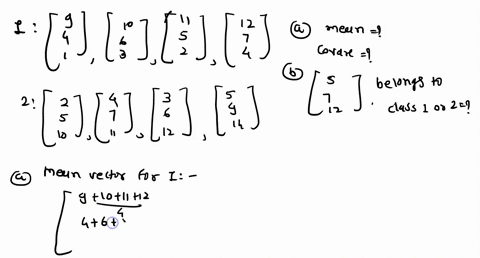 1: [9 4 1], [10 6 3], [11 5 2], [12 7 4] (a) mean =?
covare =?
2: [2 5 10], [4 7 11], [3 6 12], [5 9 14] (b) [5 7 12] belongs to class 1 or 2=?
(a) Mean vector for I:-
[ 9+10+11+12
4
4+6+